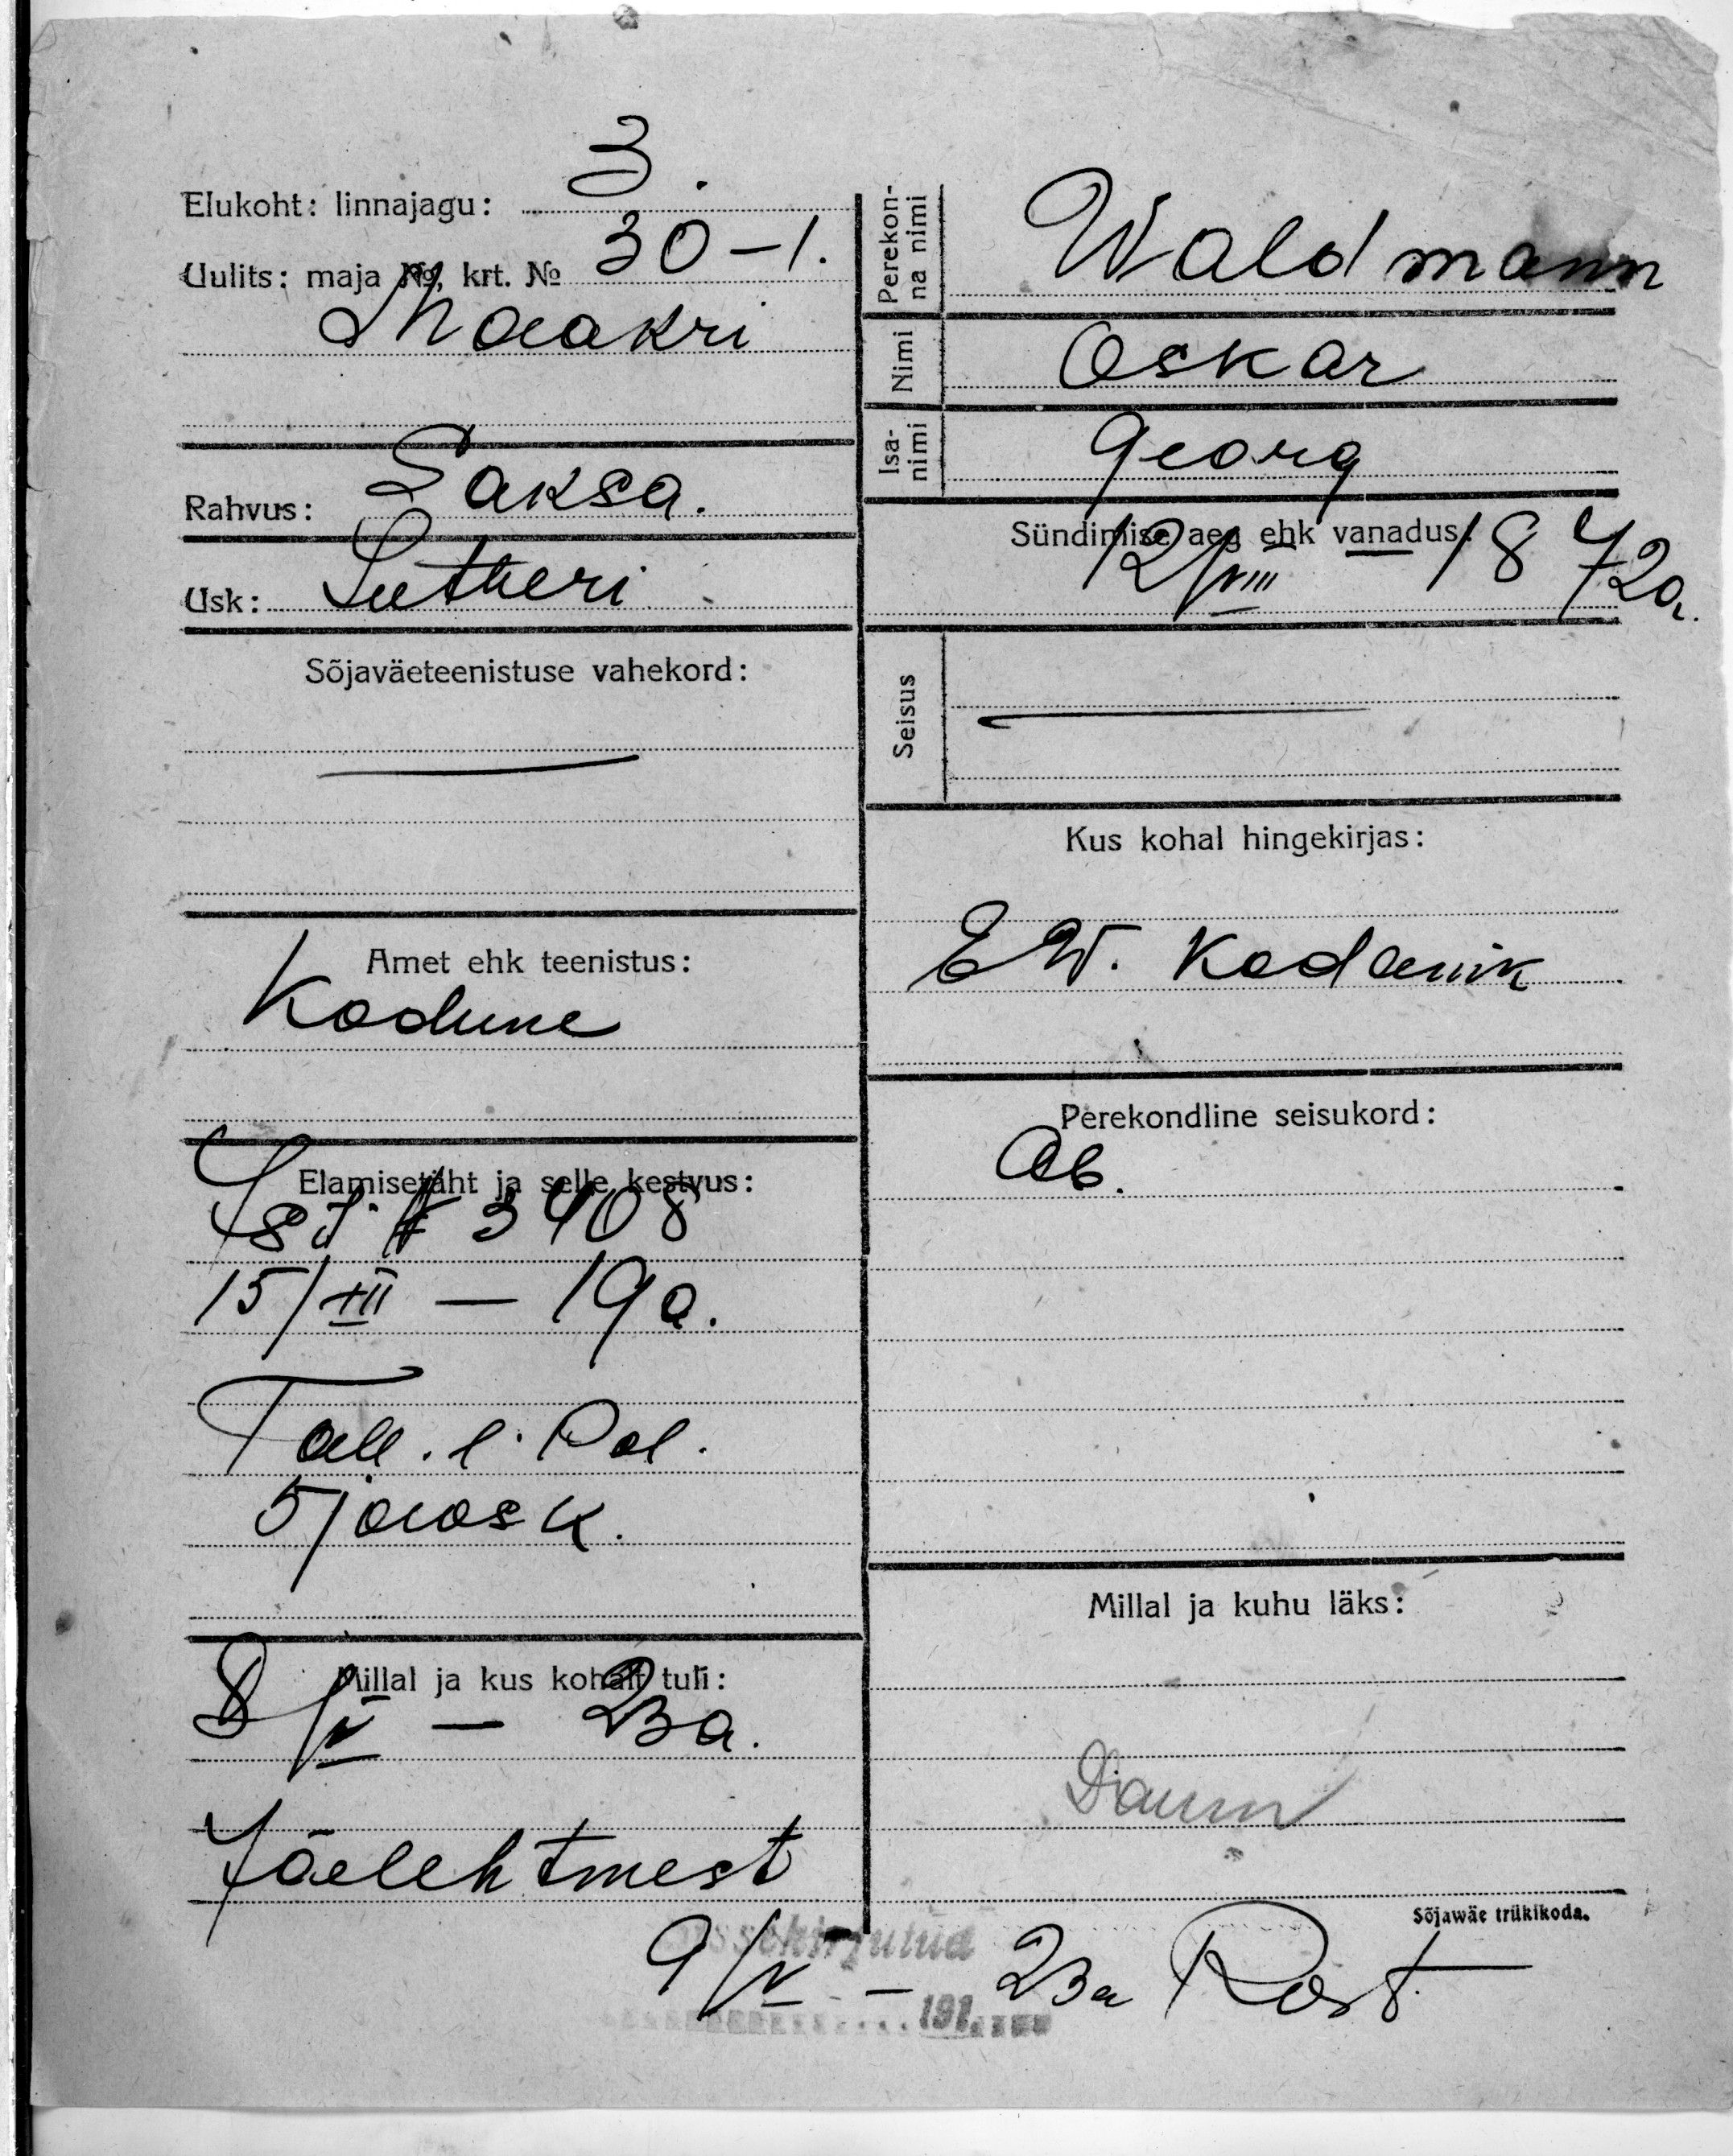 Elukoht: linnajagu: 3.
Uulits: maja №, krt. № 30-1.
Maakri
Rahvus: Saksa.
Usk: Lutheri
Sõjaväeteenistuse vahekord:
Amet ehk teenistus:
Kodune
Elamisetäht ja selle kestvus:
№ 3408
15/XII — 19a.
Tall. l. Pol.
5 jaosk.
Millal ja kus kohalt tuli:
8/V — 23a.
Jõelehtmest
Perekon-
na nimi
Waldmann
Nimi
Oskar
Isa-
nimi
Georg
Sündimise aeg ehk vanadus:
12/VIII — 1872a.
Seisus
Kus kohal hingekirjas:
E.W. Kodanik
Perekondline seisukord:
Ab.
Millal ja kuhu läks:
Sõjawäe trükikoda.
Sissekirjutud
9/V — 23a Rost
191